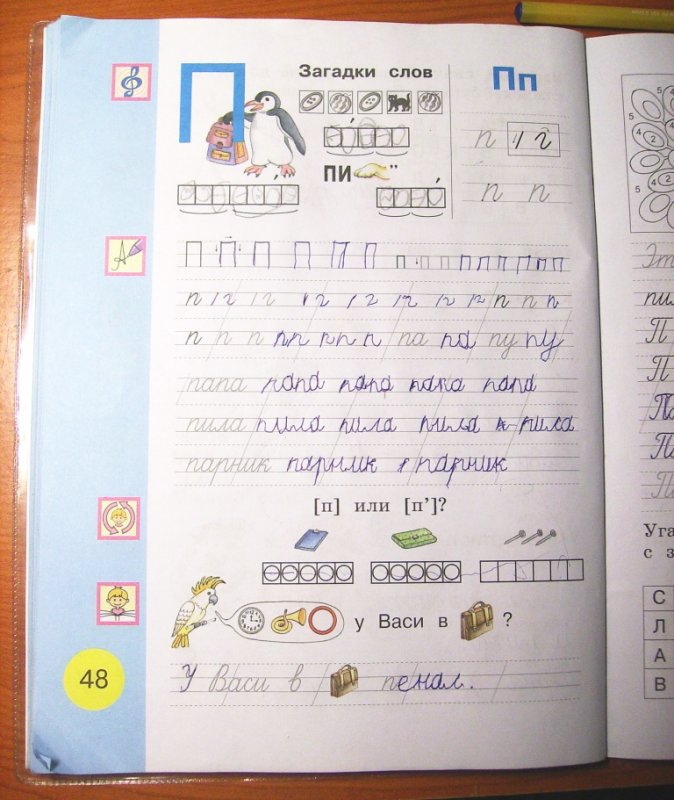 П
Загадки слов
Пп
ПИ ”
п
п п
П П П П П П п п п п п п п п п
п п п п
п п п пп п п п па па пу пу
папа папа папа папа папа
пила пила пила пила пила
парник парник парник
[п] или [п’]?
у Васи в ?
У Васи в пенал.
48
Эт
пи
П
П
П
П
П
Уга
с з
С
Л
А
В